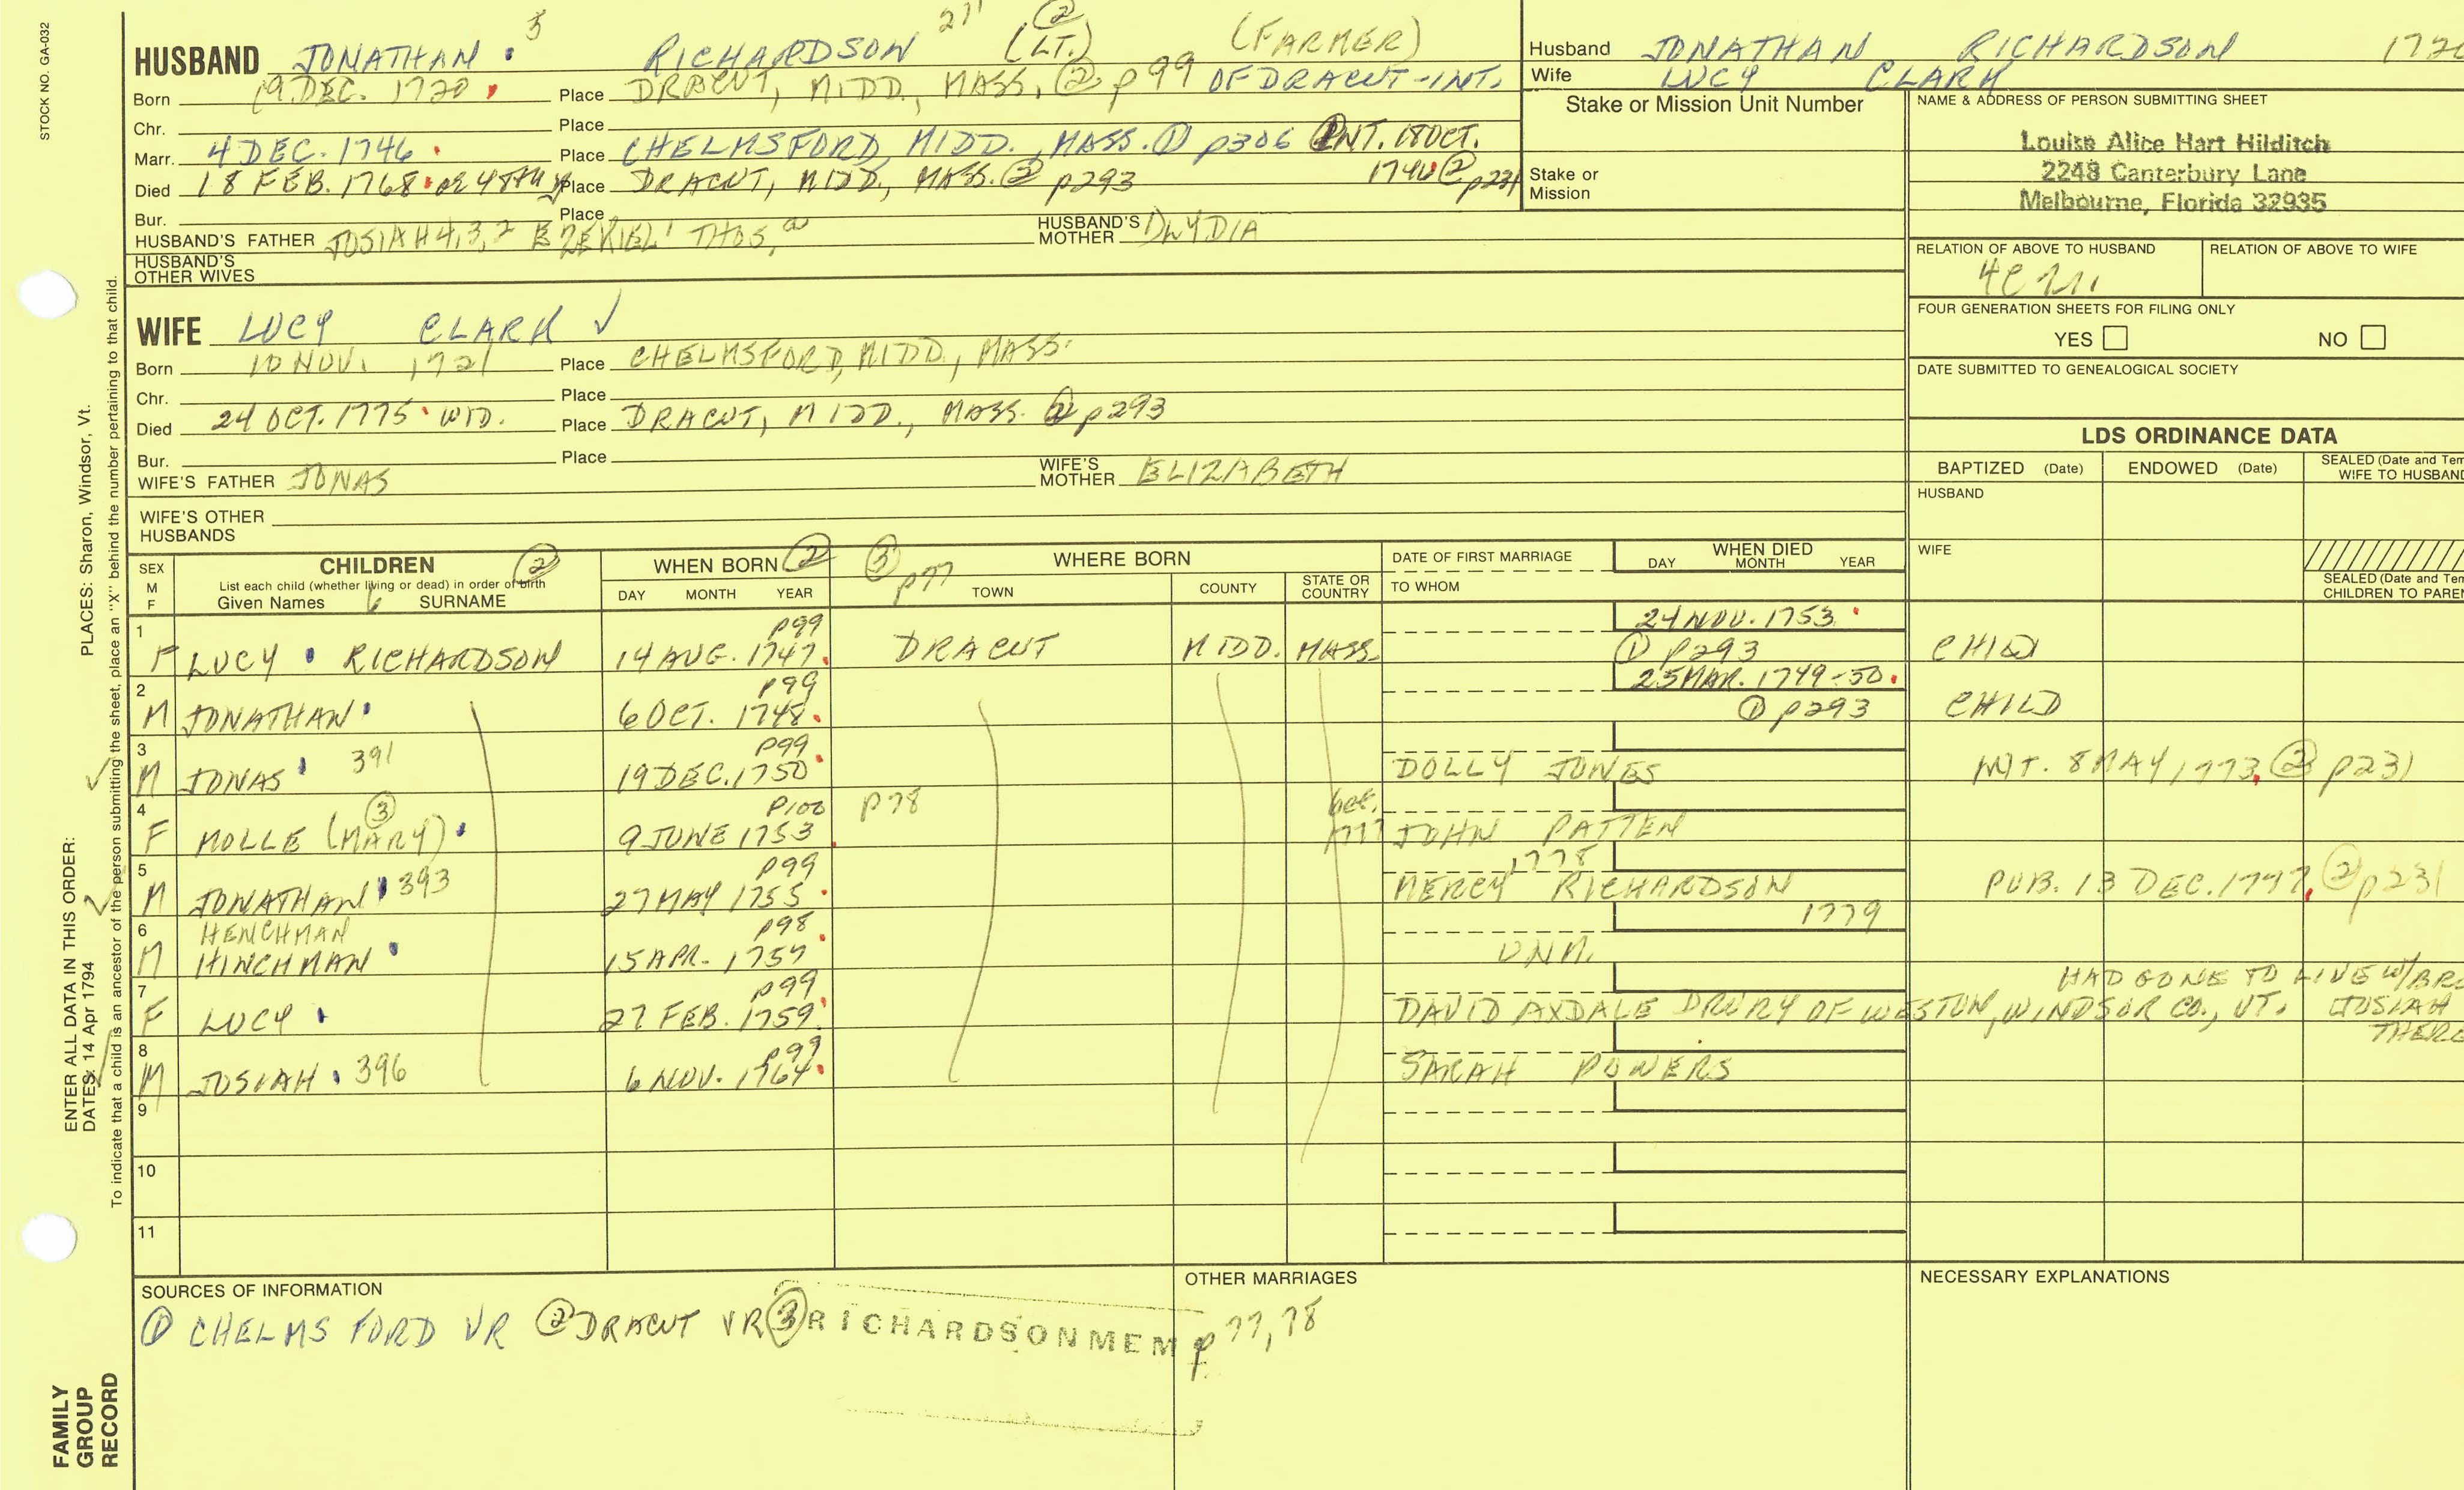 STOCK NO. GA-032
5 271 (2)
HUSBAND JONATHAN RICHARDSON (LT.) (FARMER)
Born 19 DEC. 1720 Place DRACUT, MIDD., MASS, (2) p 99 OF DRACUT-INT.
Chr. Place
Marr. 4 DEC. 1746 Place CHELMSFORD, MIDD., MASS. (1) p306 INT. 18 OCT.
1746 (2) p231
Died 18 FEB. 1768 Place DRACUT, MIDD., MASS. (2) p293
Bur. Place
HUSBAND'S FATHER JOSIAH 4,3,2 EZEKIEL1 THOS.
HUSBAND'S MOTHER LYDIA
HUSBAND'S OTHER WIVES
WIFE LUCY CLARK ✓
Born 10 NOV. 1721 Place CHELMSFORD, MIDD., MASS.
Chr. Place
Died 24 OCT. 1775 WID. Place DRACUT, MIDD., MASS. (2) p293
Bur. Place
WIFE'S FATHER JONAS
WIFE'S MOTHER ELIZABETH
WIFE'S OTHER HUSBANDS
Husband JONATHAN RICHARDSON
Wife LUCY CLARK
Stake or Mission Unit Number
Stake or Mission
NAME & ADDRESS OF PERSON SUBMITTING SHEET
Louise Alice Hart Hilditch
2248 Canterbury Lane
Melbourne, Florida 32935
RELATION OF ABOVE TO HUSBAND
RELATION OF ABOVE TO WIFE
FOUR GENERATION SHEETS FOR FILING ONLY
YES NO
DATE SUBMITTED TO GENEALOGICAL SOCIETY
LDS ORDINANCE DATA
BAPTIZED (Date) ENDOWED (Date) SEALED (Date and Tem
WIFE TO HUSBAND
HUSBAND
WIFE
SEALED (Date and Tem
CHILDREN TO PAREN
SEX M F
CHILDREN (2)
List each child (whether living or dead) in order of birth
Given Names SURNAME
WHEN BORN (2)
DAY MONTH YEAR
(3) p77 WHERE BORN
TOWN COUNTY STATE OR COUNTRY
DATE OF FIRST MARRIAGE
TO WHOM
WHEN DIED
DAY MONTH YEAR
p99 24 NOV. 1753
1 F LUCY RICHARDSON 14 AUG. 1747 DRACUT MIDD. MASS. (1) p293 CHILD
p99 25 MAR. 1749-50
2 M JONATHAN 6 OCT. 1748 (1) p293 CHILD
p99
3 M JONAS 391 19 DEC. 1750 DOLLY JONES INT. 8 MAY 1773 (2) p231
(3) p100 p78 bet.
4 F MOLLE (MARY) 9 JUNE 1753 1777 JOHN PATTEN
p99 1778
5 M JONATHAN 393 27 MAY 1755 MERCY RICHARDSON PUB. 13 DEC. 1777 (2) p231
HENCHMAN p98 1779
6 M HINCHMAN 15 APR. 1757 UNM.
p99 HAD GONE TO LIVE W/BRO
7 F LUCY 27 FEB. 1759 DAVID AXDALE DRURY OF WESTON, WINDSOR CO., VT. JOSIAH
THERE
p99
8 M JOSIAH 396 6 NOV. 1764 SARAH POWERS
9
10
11
SOURCES OF INFORMATION
(1) CHELMSFORD VR (2) DRACUT VR (3) RICHARDSON MEM p 77, 78
OTHER MARRIAGES
NECESSARY EXPLANATIONS
PLACES: Sharon, Windsor, Vt.
ENTER ALL DATA IN THIS ORDER:
DATES: 14 Apr 1794
To indicate that a child is an ancestor of the person submitting the sheet, place an "X" behind the number pertaining to that child.
FAMILY
GROUP
RECORD